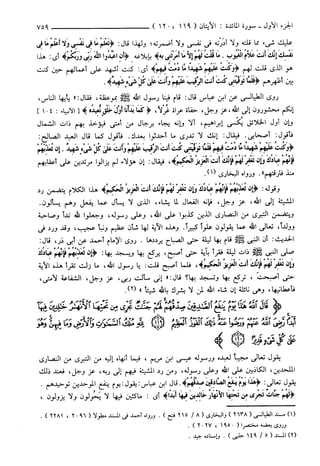 الجزء الأول - سورة المائدة: الآيتان (١١٩، ١٢٠) ٧٥٩
عليك شيء مما قلته ولا أردته في نفسي ولا أضمرته؛ ولهذا قال: ﴿تعلم ما في نفسي ولا أعلم ما في
نفسك إنك أنت علام الغيوب. ما قلت لهم إلا ما أمرتني به﴾ بإبلاغه ﴿أن اعبدوا الله ربي وربكم﴾ أي: هذا
هو الذي قلت لهم ﴿وكنت عليهم شهيداً ما دمت فيهم﴾ أي: كنت أشهد على أعمالهم حين كنت
بين أظهرهم ﴿فلما توفيتني كنت أنت الرقيب عليهم وأنت على كل شيء شهيد﴾.
روى الطيالسي عن ابن عباس قال: قام فينا رسول الله ﷺ بموعظة، فقال: «يأيها الناس،
إنكم محشورون إلى الله، عز وجل، حفاة عراة غرلاً، ﴿كما بدأنا أول خلق نعيده﴾ [الأنبياء: ١٠٤]
وإن أول الخلائق يُكسى إبراهيم، ألا وإنه يجاء برجال من أمتي فيؤخذ بهم ذات الشمال
فأقول: أصحابي. فيقال: إنك لا تدري ما أحدثوا بعدك. فأقول كما قال العبد الصالح:
﴿وكنت عليهم شهيداً ما دمت فيهم فلما توفيتني كنت أنت الرقيب عليهم وأنت على كل شيء شهيد. إن تعذبهم
فإنهم عبادك وإن تغفر لهم فإنك أنت العزيز الحكيم﴾. فيقال: إن هؤلاء لم يزالوا مرتدين على أعقابهم
منذ فارقتهم». ورواه البخاري (١).
وقوله: ﴿إن تعذبهم فإنهم عبادك وإن تغفر لهم فإنك أنت العزيز الحكيم﴾ هذا الكلام يتضمن رد
المشيئة إلى الله، عز وجل، فإنه الفعال لما يشاء، الذي لا يسأل عما يفعل وهم يسألون.
ويتضمن التبري من النصارى الذين كذبوا على الله، وعلى رسوله، وجعلوا لله نداً وصاحبة
وولداً، تعالى الله عما يقولون علواً كبيراً. وهذه الآية لها شأن عظيم ونبأ عجيب، وقد ورد في
الحديث: أن النبي ﷺ قام بها ليلة حتى الصباح يرددها. وروى الإمام أحمد عن أبي ذر، قال:
صلى النبي ﷺ ذات ليلة فقرأ بآية حتى أصبح، يركع بها ويسجد بها: ﴿إن تعذبهم فإنهم عبادك
وإن تغفر لهم فإنك أنت العزيز الحكيم﴾. فلما أصبح قلت: يا رسول الله، ما زلت تقرأ هذه الآية
حتى أصبحت، تركع بها وتسجد بها؟ قال: «إني سألت ربي، عز وجل، الشفاعة لأمتي،
فأعطانيها، وهي نائلة إن شاء الله لمن لا يشرك بالله شيئاً» (٢).
﴿قال الله هذا يوم ينفع الصادقين صدقهم لهم جنات تجري من تحتها الأنهار خالدين فيها
أبداً رضي الله عنهم ورضوا عنه ذلك الفوز العظيم (١١٩) لله ملك السماوات والأرض وما فيهن وهو
على كل شيء قدير (١٢٠)﴾
يقول تعالى مجيباً لعبده ورسوله عيسى ابن مريم، فيما أنهاه إليه من التبري من النصارى
الملحدين، الكاذبين على الله وعلى رسوله، ومن رد المشيئة فيهم إلى ربه، عز وجل، فعند ذلك
يقول تعالى: ﴿هذا يوم ينفع الصادقين صدقهم﴾. قال ابن عباس: يقول: يوم ينفع الموحدين توحيدهم.
﴿لهم جنات تجري من تحتها الأنهار خالدين فيها أبداً﴾ أي: ماكثين فيها لا يحولون ولا يزولون،
(١) مسند الطيالسي (٢١٣٨) والبخاري (٨ / ٢١٥ فتح). ورواه أحمد في المسند مطولاً (٢٠٩٦، ٢٢٨١).
وروى بعضه مختصراً (١٩٥٠، ٢٠٢٧).
(٢) المسند (٥ / ١٤٩ حلبي). وإسناده جيد.